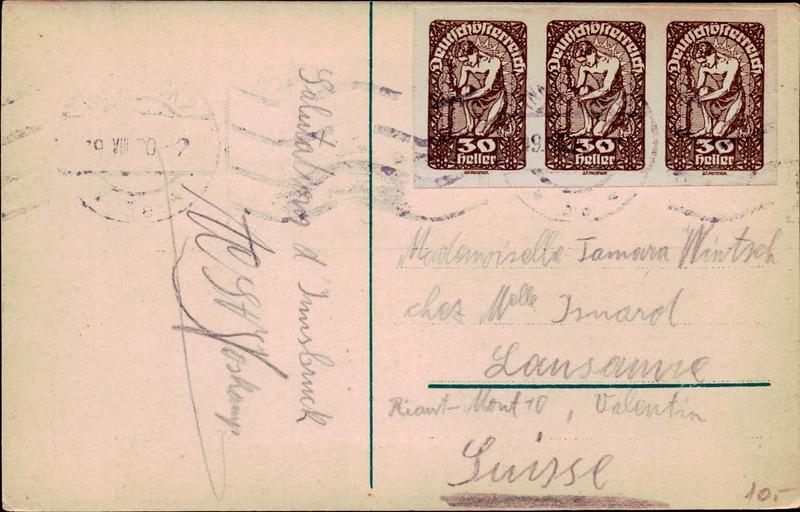 Deutschösterreich
30
Heller
Deutschösterreich
30
Heller
Deutschösterreich
30
Heller
Salutations d'Innsbruck
Mademoiselle Tamara Wintsch
chez Melle Isnard
Lausanne
Riant-Mont 10, Valentin
Suisse
10.-